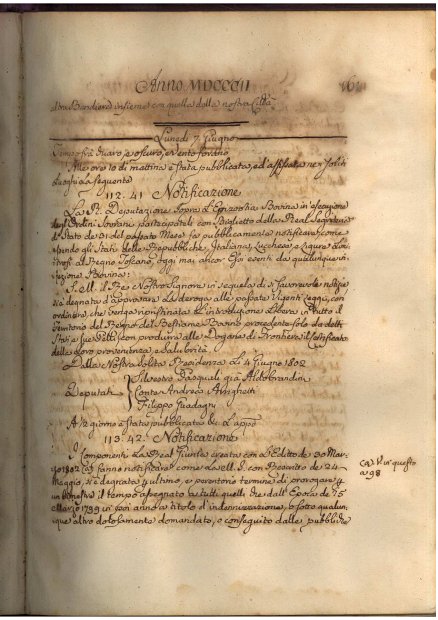 Anno MDCCCII
altra Bandiera insieme con quella della nostra Città
Lunedì 7 Giugno
Tempo fra chiaro, e oscuro, e vento
Alle ore 10 di mattina è stata pubblicata, ed affissata ne' soliti
luoghi la seguente
112. 41 Notificazione
La R. Deputazione sopra l'Epizootia Bovina in esecuzione
degli Ordini Sovrani partecipatili con Biglietto della Real Segreteria
di Stato de' 31 del Mese fa pubblicamente notificare, come
essendo gli Stati delle Repubbliche Italiana, Lucchese, e Ligure
al Regno Toscano, oggi mai ancor essi esenti da qualunque in-
fezione Bovina:
S. M. il Re Nostro Signore in sequela di sì favorevole notizia
si è degnata d'approvare la deroga alle passate Vigenti Leggi, con
ordinare, che venga ripristinata l'introduzione libera in tutto il
Territorio del Regno del Bestiame Bovino procedente solo da detti
Stati
della loro provenienza e salubrità.
Dalla Nostra solita Residenza li 4 Giugno 1802
Silvestro Pasquali già Aldobrandini
Deputati Conte Andrea Arrigheiti
Filippo Guadagni
A ½ giorno è stata pubblicata &c. l'app.
113. 42. Notificazione
I Componenti la Real Giunta creata con l'Editto de' 30 Mar-
zo 1802 (a) fanno notificare come la M. S. con Rescritto de' 24
Maggio, si è degnata ultimo, e perentorio termine di prorogare
un bimestre il tempo assegnato a tutti quelli che dall'Epoca de' 25
Marzo 1799 in poi anno a titolo d'indennizzazione, o sotto qualun-
que altro dolosamente domandato, o conseguito dalle pubbliche
(a) V. in questo
a 98